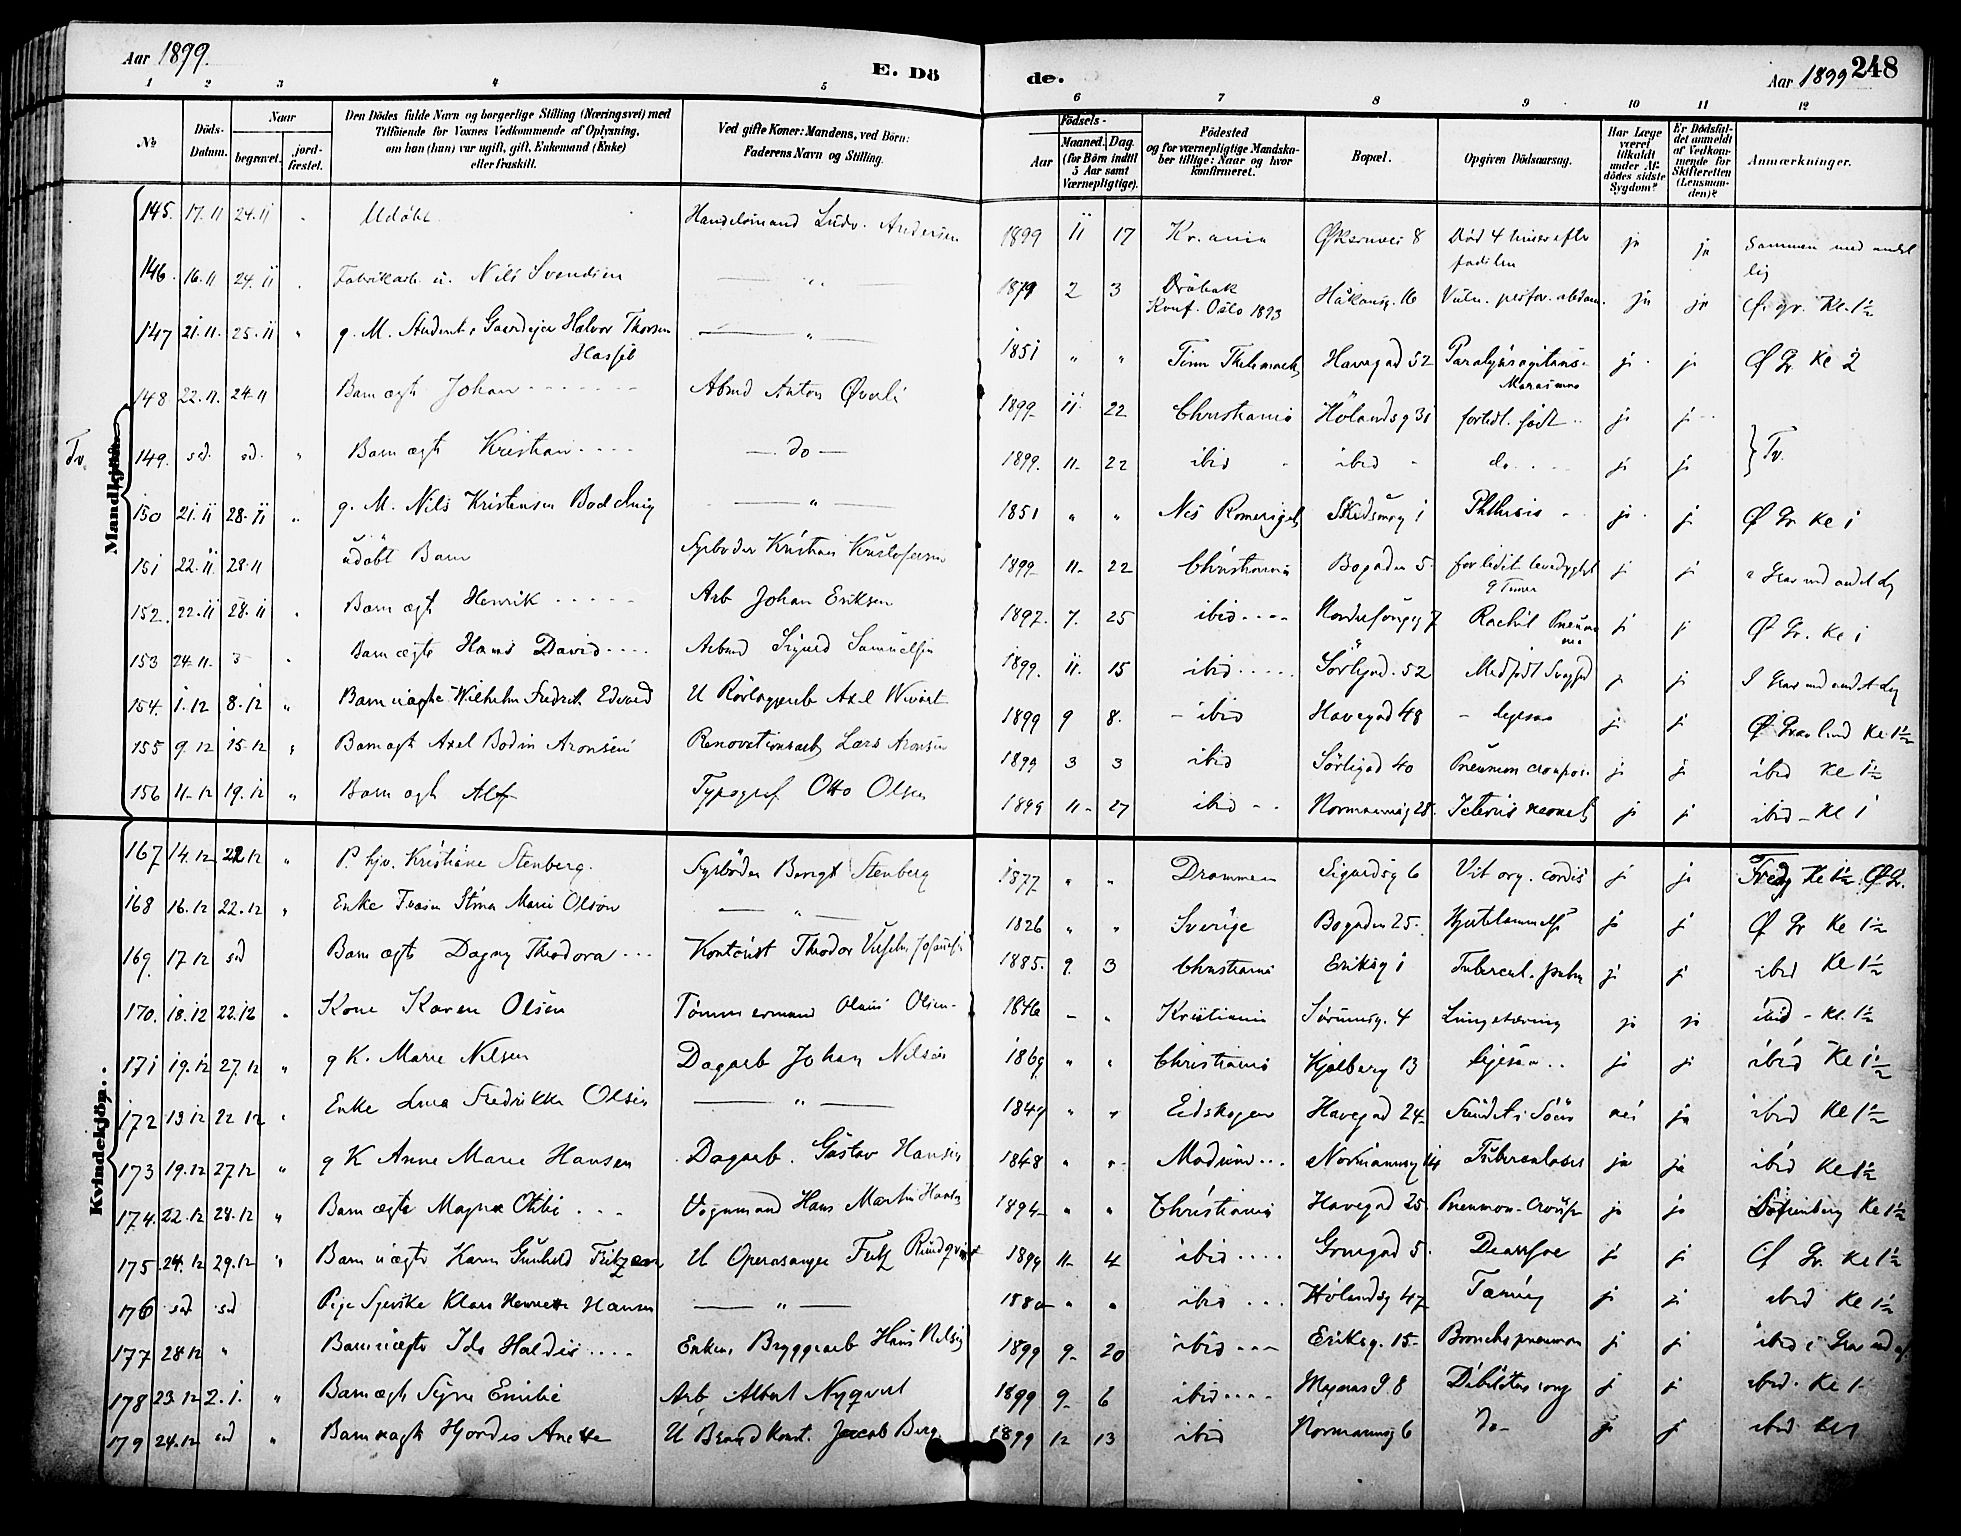 Aar 1899.
E. Dö
de.
Aar 1899
248
1 2 3 4 5 6 7 8 9 10 11 12
No
Döds-Datum.
Naar
begravet.
jord-fæstet.
Den Dödes fulde Navn og borgerlige Stilling (Næringsvei) med
Tilföiende for Voxnes Vedkommende af Oplysning,
om han (hun) var ugift, gift, Enkemand (Enke)
eller fraskilt.
Ved gifte Koner: Mandens, ved Börn:
Faderens Navn og Stilling.
Födsels-
Aar
Maaned.
Dag.
(for Börn indtil
5 Aar samt
Værnepligtige).
Födested
og for værnepligtige Mandskaber tillige: Naar og hvor
konfirmeret.
Bopæl.
Opgiven Dödsaarsag.
Har Læge været tilkaldt under Afdödes sidste Sygdom?
Er Dödsfaldet anmeldt af Vedkommende for Skifteretten (Lensmanden)?
Anmærkninger.
Mandkjön
145. 17.11 24.11 Udöbt Handelsmand Ludv. Andersen 1899 11 17 Kr.ania Økernvei 8 Död 4 timer efter ja ja Sammen med andet lig
146. 16.11 24.11 Fabrikarb. u. Nils Svendsen — " 1879 2 3 Dröbak Konf. Oslo 1893 Håkonsg. 16 Vuln. perfor. abdom. ja ja Ø. gr. Kl. 1½
147 21.11. 25.11 " g. M. Student, Gaardejer Halvor Thorsen — " — 1851 " " Tinn Thelemark Havegad 52 Paralysis agitans - Marasmus j. j Ø Gr. Kl 2
148 22.11. 24.11 Barn ægt Johan Arbmd Anton Øverli 1899 11. 22 Christiania Hölandsg 31 fortidl. födt j j
Tv. 149. sd. sd. " Barn ægt Kristian — do — 1899. 11. 22 ibid ibid do. j j } Tv.
150 21.11 28.11 " g. M. Nils Kristensen — " — 1851 " " Nes Romerige Skedsmog 1 Phthisis j. j Ø Gr Kl 1
151 22.11. 28.11 udöbt Barn Fyrböder Kristian Kristofersen 1899 11. 22 Christiania Bogaden 5 for lidet levedygtigt 9 Timer j j i Grav med andet Lig
152. 22.11 28.11 " Barn ægt Henrik Arb Johan Eriksen 1897. 7. 25 ibid Rachit Pneumonia j j Ø Gr. Kl 1
153 24.11. " Barn ægte Hans David Arbmd Sigurd Samuelsen 1899. 11. 15 ibid Sörligad. 52 Medfödt Svaghed j j I Grav med andet Lig
154. 1.12 8.12 " Barn uægte Wilhelm Fredrik Edvard U Rörlæggerarb Axel 1899 9 8. — ibid Havegad 48 — ligesaa j j Ø Kl. 1½
155 9.12 15.12 " Barn ægt Axel Bodin Aronsen Renovationsarb Lars Aronsen 1899 3 3 ibid Sörligad 40 Pneumon croupos. j j ibid Kl 1½
156 11.12 19.12 " Barn ægt Alf Typograf Otto Olsen 1899 11. 27 ibid Normannsg 28. Icterus neonat j j ibid - Kl 1
Kvindekjön.
167 14.12 22 12 " P. hjv. Kristiane Stenberg. Fyrböder Bengt Stenberg 1877 " " Drammen Sigurdsg 6 Vit org. cordis j ja Kl 1½ Ø Gr.
168 16.12 22.12 " Enke Marie Olson — " — 1826 " " Sverige Bogaden 25. Hjertelammelse ja j Ø Gr Kl 1½
169. 17 12 sd Barn ægt Dagny Theodora Kontorist Theodor 1885. 9. 3 Christiania Eriksg 1 Tubercul. pulm j j ibid Kl 1½
170. 18.12 22.12 " Kone Karen Olsen Tömmermand Olaus Olsen 1846 — " Kristiania Sörumsg. 4 Lungetæring ja ja ibid - Kl. 1½
171 19.12 27.12 " g K. Marie Nilsen Dagarb Johan Nilsen 1869 " " Christiania Kjølberg 13 ligesaa j j ibid Kl 1½
172 13 12 22 12 " Enke Fredrikke Olsen — " — 1849 " " Eidskogen Havegad 24 Fundet i Söen nei ja ibid Kl 1½
173 19.12 27.12 " g K Anne Marie Hansen Dagarb. Gustav Hansen 1848 " " Modum Normannsg 14 Tuberculosis ja ja ibid Kl 1½
174. 22.12 28.12 " Barn ægte Magna Otilie Vognmand Hans Martin Hansen 1894 " " Christiania Havegad 25 Pneumon. Croup j j Sofienberg Kl 1½
175. 24.12 29.12 " Barn uægte Karen Gunhild U Operasanger Fritz 1899 11. 4 ibid Grönegad 5. Diarrhoe j j Ø Gr. Kl 1½
176 sd sd Pige Syerske Klara Henriette Hansen — " — 1880 " " ibid Hölandsg 47 Tæring j j ibid Kl 1½
177 28 12 " Barn uægte Ida Haldis Enkem. Bryggearb Hans Nilsen 1899 9. 20 ibid Eriksg. 15 Bronchopneumon j j ibid i Grav
178 23.12 2.1. " Barn ægt Signe Emilie Arb. Albert Nyqvist 1899 9. 6 ibid 8 Debilitas cong j j ibid. Kl 1
179 24.12 sd " Barn uægt Hjördis Anette U Brandkonst. Jacob Berg. 1899 12 13 ibid Normannsg 6 do j j ibid Kl 1